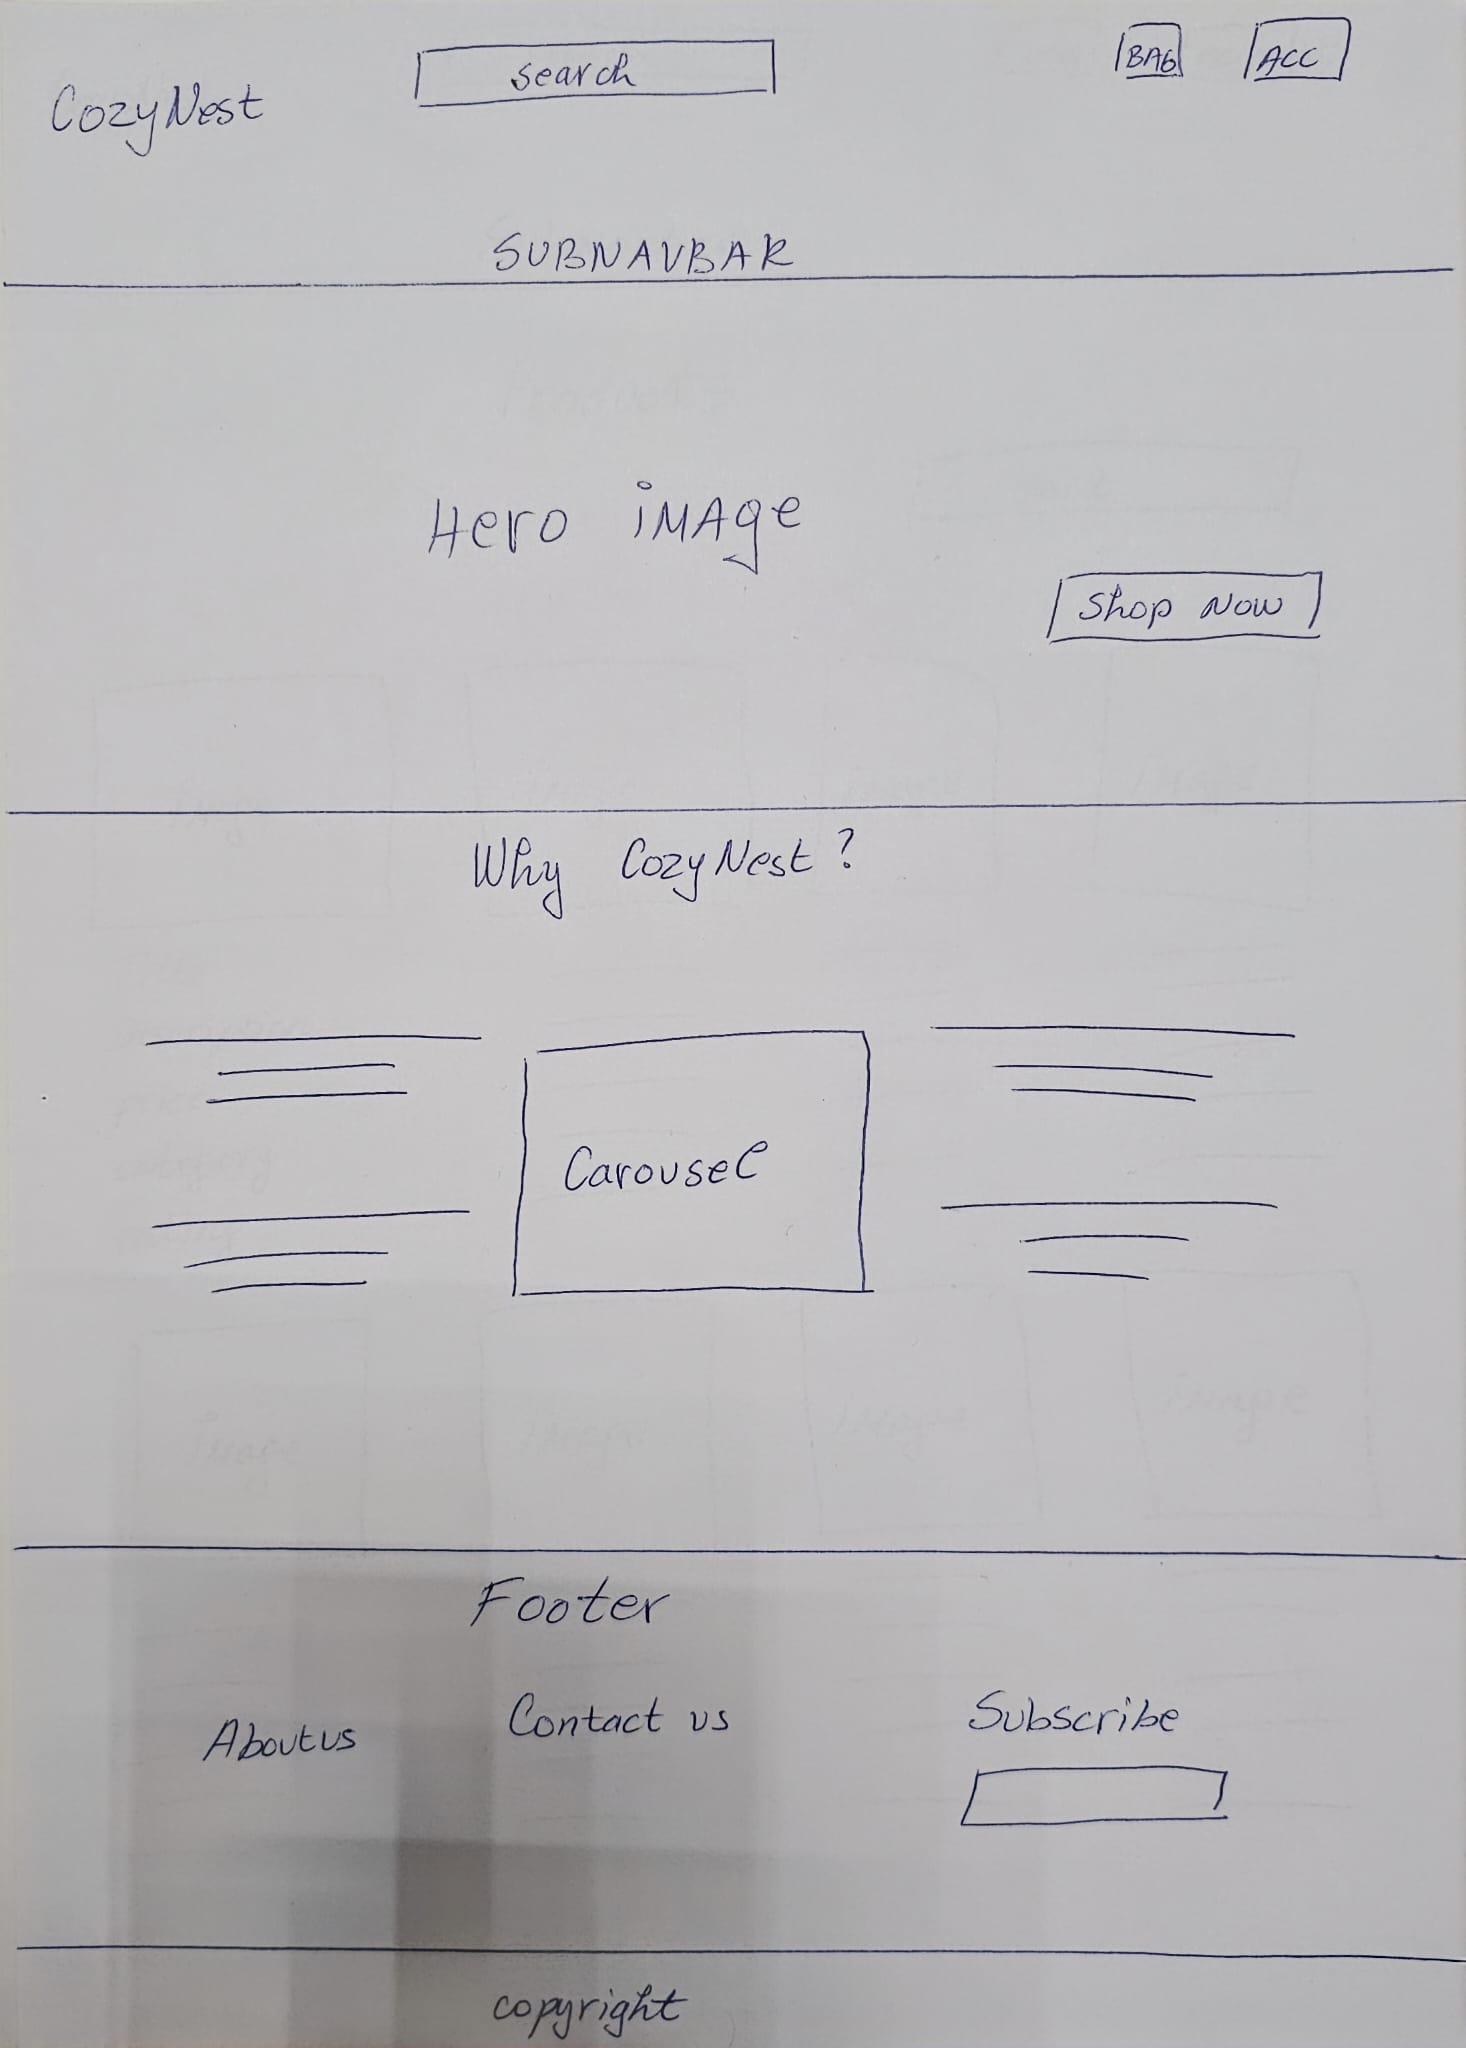 CozyNest
search
BAG
ACC
SUBNAVBAR
Hero iMAge
Shop Now
Why CozyNest?
Carousel
Footer
About us
Contact us
Subscribe
copyright